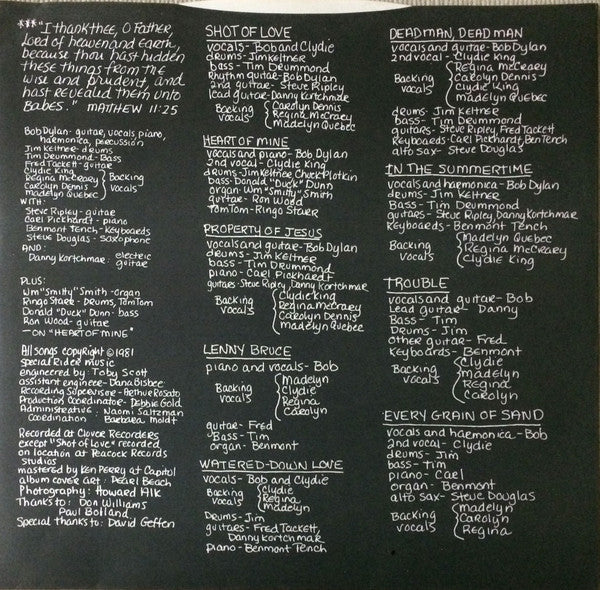 ***"I thank thee, O Father,
Lord of heaven and Earth,
because thou hast hidden
these things from the
wise and prudent, and
hast revealed them unto
Babes." MATTHEW 11:25
Bob Dylan - guitar, vocals, piano,
harmonica, percussion
Jim Keltner - drums
Tim Drummond - Bass
Fred Tackett - guitar
Clydie King
Regina McCrary
Carolyn Dennis
Madelyn Quebec
Backing
vocals
WITH:
Steve Ripley - guitar
Carl Pickhardt - piano
Benmont Tench - Keyboards
Steve Douglas - Saxophone
AND:
Danny Kortchmar: electric
guitar
PLUS:
Wm "Smitty" Smith - organ
Ringo Starr - Drums, Tom Tom
Donald "Duck" Dunn - bass
Ron Wood - guitar
- ON "HEART OF MINE"
All songs copyright © 1981
Special Rider music
engineered by: Toby Scott
assistant engineer - Dana Bisbee
Recording Supervisor - Arthur Rosato
Production Coordinator - Debbie Gold
Administrative: Naomi Saltzman
Coordination: Barbara Moldt
Recorded at Clover Recorders
except "Shot of Love" recorded
on location at Peacock Records
Studios
mastered by Ken Perry at Capitol
album cover art: Pearl Beach
Photography: Howard Alk
Thanks to: Don Williams
Paul Bolland
Special thanks to: David Geffen
SHOT OF LOVE
vocals - Bob and Clydie
drums - Jim Keltner
bass - Tim Drummond
Rhythm guitar - Bob Dylan
2nd guitar - Steve Ripley
lead guitar - Danny Kortchmar
Backing
vocals
Carolyn Dennis
Regina McCrary
Madelyn Quebec
HEART OF MINE
vocals and piano - Bob Dylan
2nd vocal - Clydie King
drums - Jim Keltner, Chuck Plotkin
Bass - Donald "Duck" Dunn
organ - Wm "Smitty" Smith
guitar - Ron Wood
Tom Tom - Ringo Starr
PROPERTY OF JESUS
vocals and guitar - Bob Dylan
drums - Jim Keltner
bass - Tim Drummond
piano - Carl Pickhardt
guitars - Steve Ripley, Danny Kortchmar
Backing
vocals
Clydie King
Regina McCrary
Carolyn Dennis
Madelyn Quebec
LENNY BRUCE
piano and vocals - Bob
Backing
vocals
Madelyn
Clydie
Regina
Carolyn
guitar - Fred
Bass - Tim
organ - Benmont
WATERED-DOWN LOVE
vocals - Bob and Clydie
Backing
vocals
Clydie
Regina
Madelyn
Drums - Jim
guitars - Fred Tackett,
Danny Kortchmar
piano - Benmont Tench
DEAD MAN, DEAD MAN
vocals and guitar - Bob Dylan
2nd vocal - Clydie King
Backing
vocals
Regina McCrary
Carolyn Dennis
Clydie King
Madelyn Quebec
drums - Jim Keltner
Bass - Tim Drummond
guitars - Steve Ripley, Fred Tackett
Keyboards - Carl Pickhardt, Ben Tench
alto sax - Steve Douglas
IN THE SUMMERTIME
vocals and harmonica - Bob Dylan
drums - Jim Keltner
Bass - Tim Drummond
guitars - Steve Ripley, Danny Kortchmar
Keyboards - Benmont Tench
Backing
vocals
Madelyn Quebec
Regina McCrary
Clydie King
TROUBLE
vocals and guitar - Bob
Lead guitar - Danny
Bass - Tim
Drums - Jim
other guitar - Fred
Keyboards - Benmont
Backing
vocals
Clydie
Madelyn
Regina
Carolyn
EVERY GRAIN OF SAND
vocals and harmonica - Bob
2nd vocal - Clydie
drums - Jim
bass - Tim
piano - Carl
organ - Benmont
alto sax - Steve Douglas
Backing
vocals
Madelyn
Carolyn
Regina